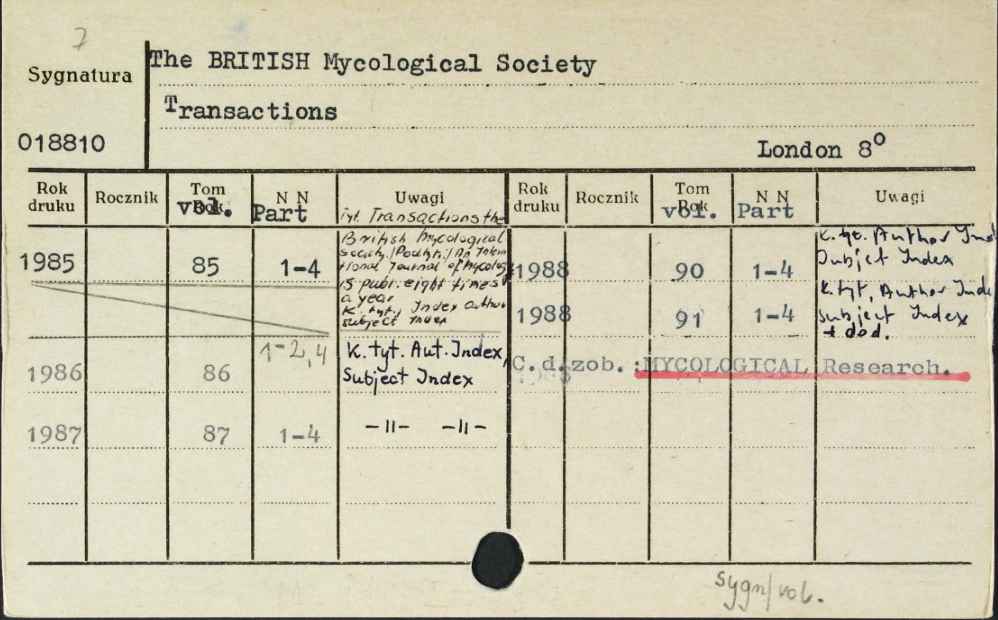 7
Sygnatura
The BRITISH Mycological Society
Transactions
018810
London 8º
Rok druku Rocznik Tom vol. N N Part Uwagi Rok druku Rocznik Tom vol. N N Part Uwagi
1985 85 1-4
tyt. Transactions the
British Mycological
Society. An Interna
tional Journal of Mycology
is publ. eight times
a year
K. tyt., Index author
subject Index
1986 86 1-2,4 K. tyt. Aut. Index,
Subject Index
1987 87 1-4 -11- -11-
1988 90 1-4 K. tyt. Author Ind
Subjct Index
1988 91 1-4 K. tyt, Author Inde
Subject Index
+ dod.
C.d.zob.:MYCOLOGICAL Research.
sygn/vol.